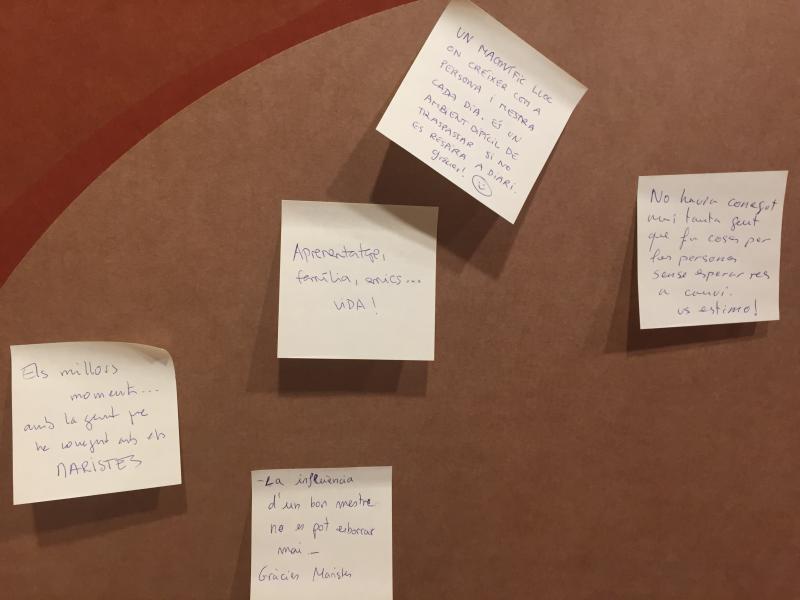 UN MAGNÍFIC LLOC
ON CRÉIXER COM A
PERSONA I MESTRA
CADA DIA. ÉS UN
AMBIENT DIFÍCIL DE
TRASPASSAR SI NO
ES RESPIRA A DIARI.
gràcies!
Aprenentatge,
família, amics...
VIDA!
No havia conegut
mai tanta gent
que fa coses per
les persones
sense esperar res
a canvi.
us estimo!
Els millors
moments...
amb la gent que
he conegut amb els
MARISTES
-La influència
d'un bon mestre
no es pot esborrar
mai-
Gràcies Maristes